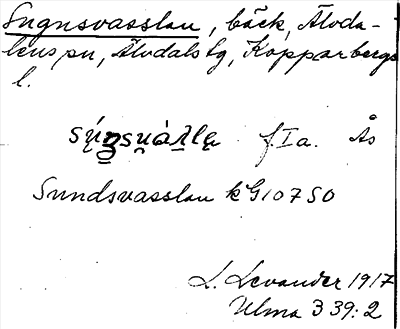 Sugnsvasslan, bäck, Älvda-
lens sn, Älvdals tg, Kopparbergs
l.
f Ia. Ås
Sundsvasslan kG10750
L. Levander 1917
Ulma 339:2